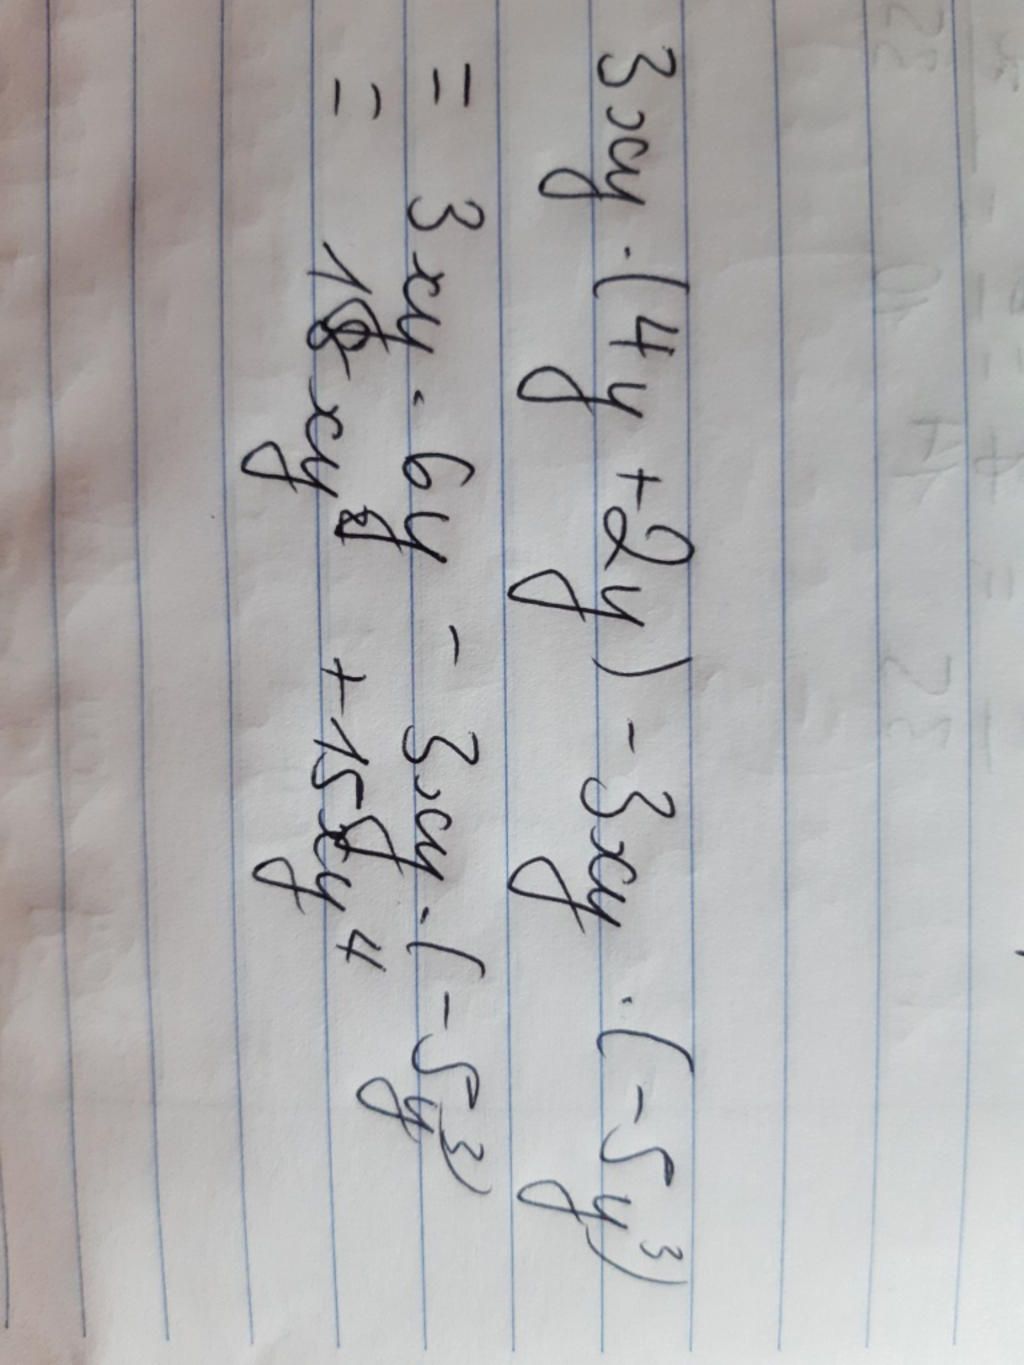 3xy · (4y + 2y) - 3xy · (-5y³)
= 3xy · 6y - 3xy · (-5y³)
= 18xy² + 15xy⁴